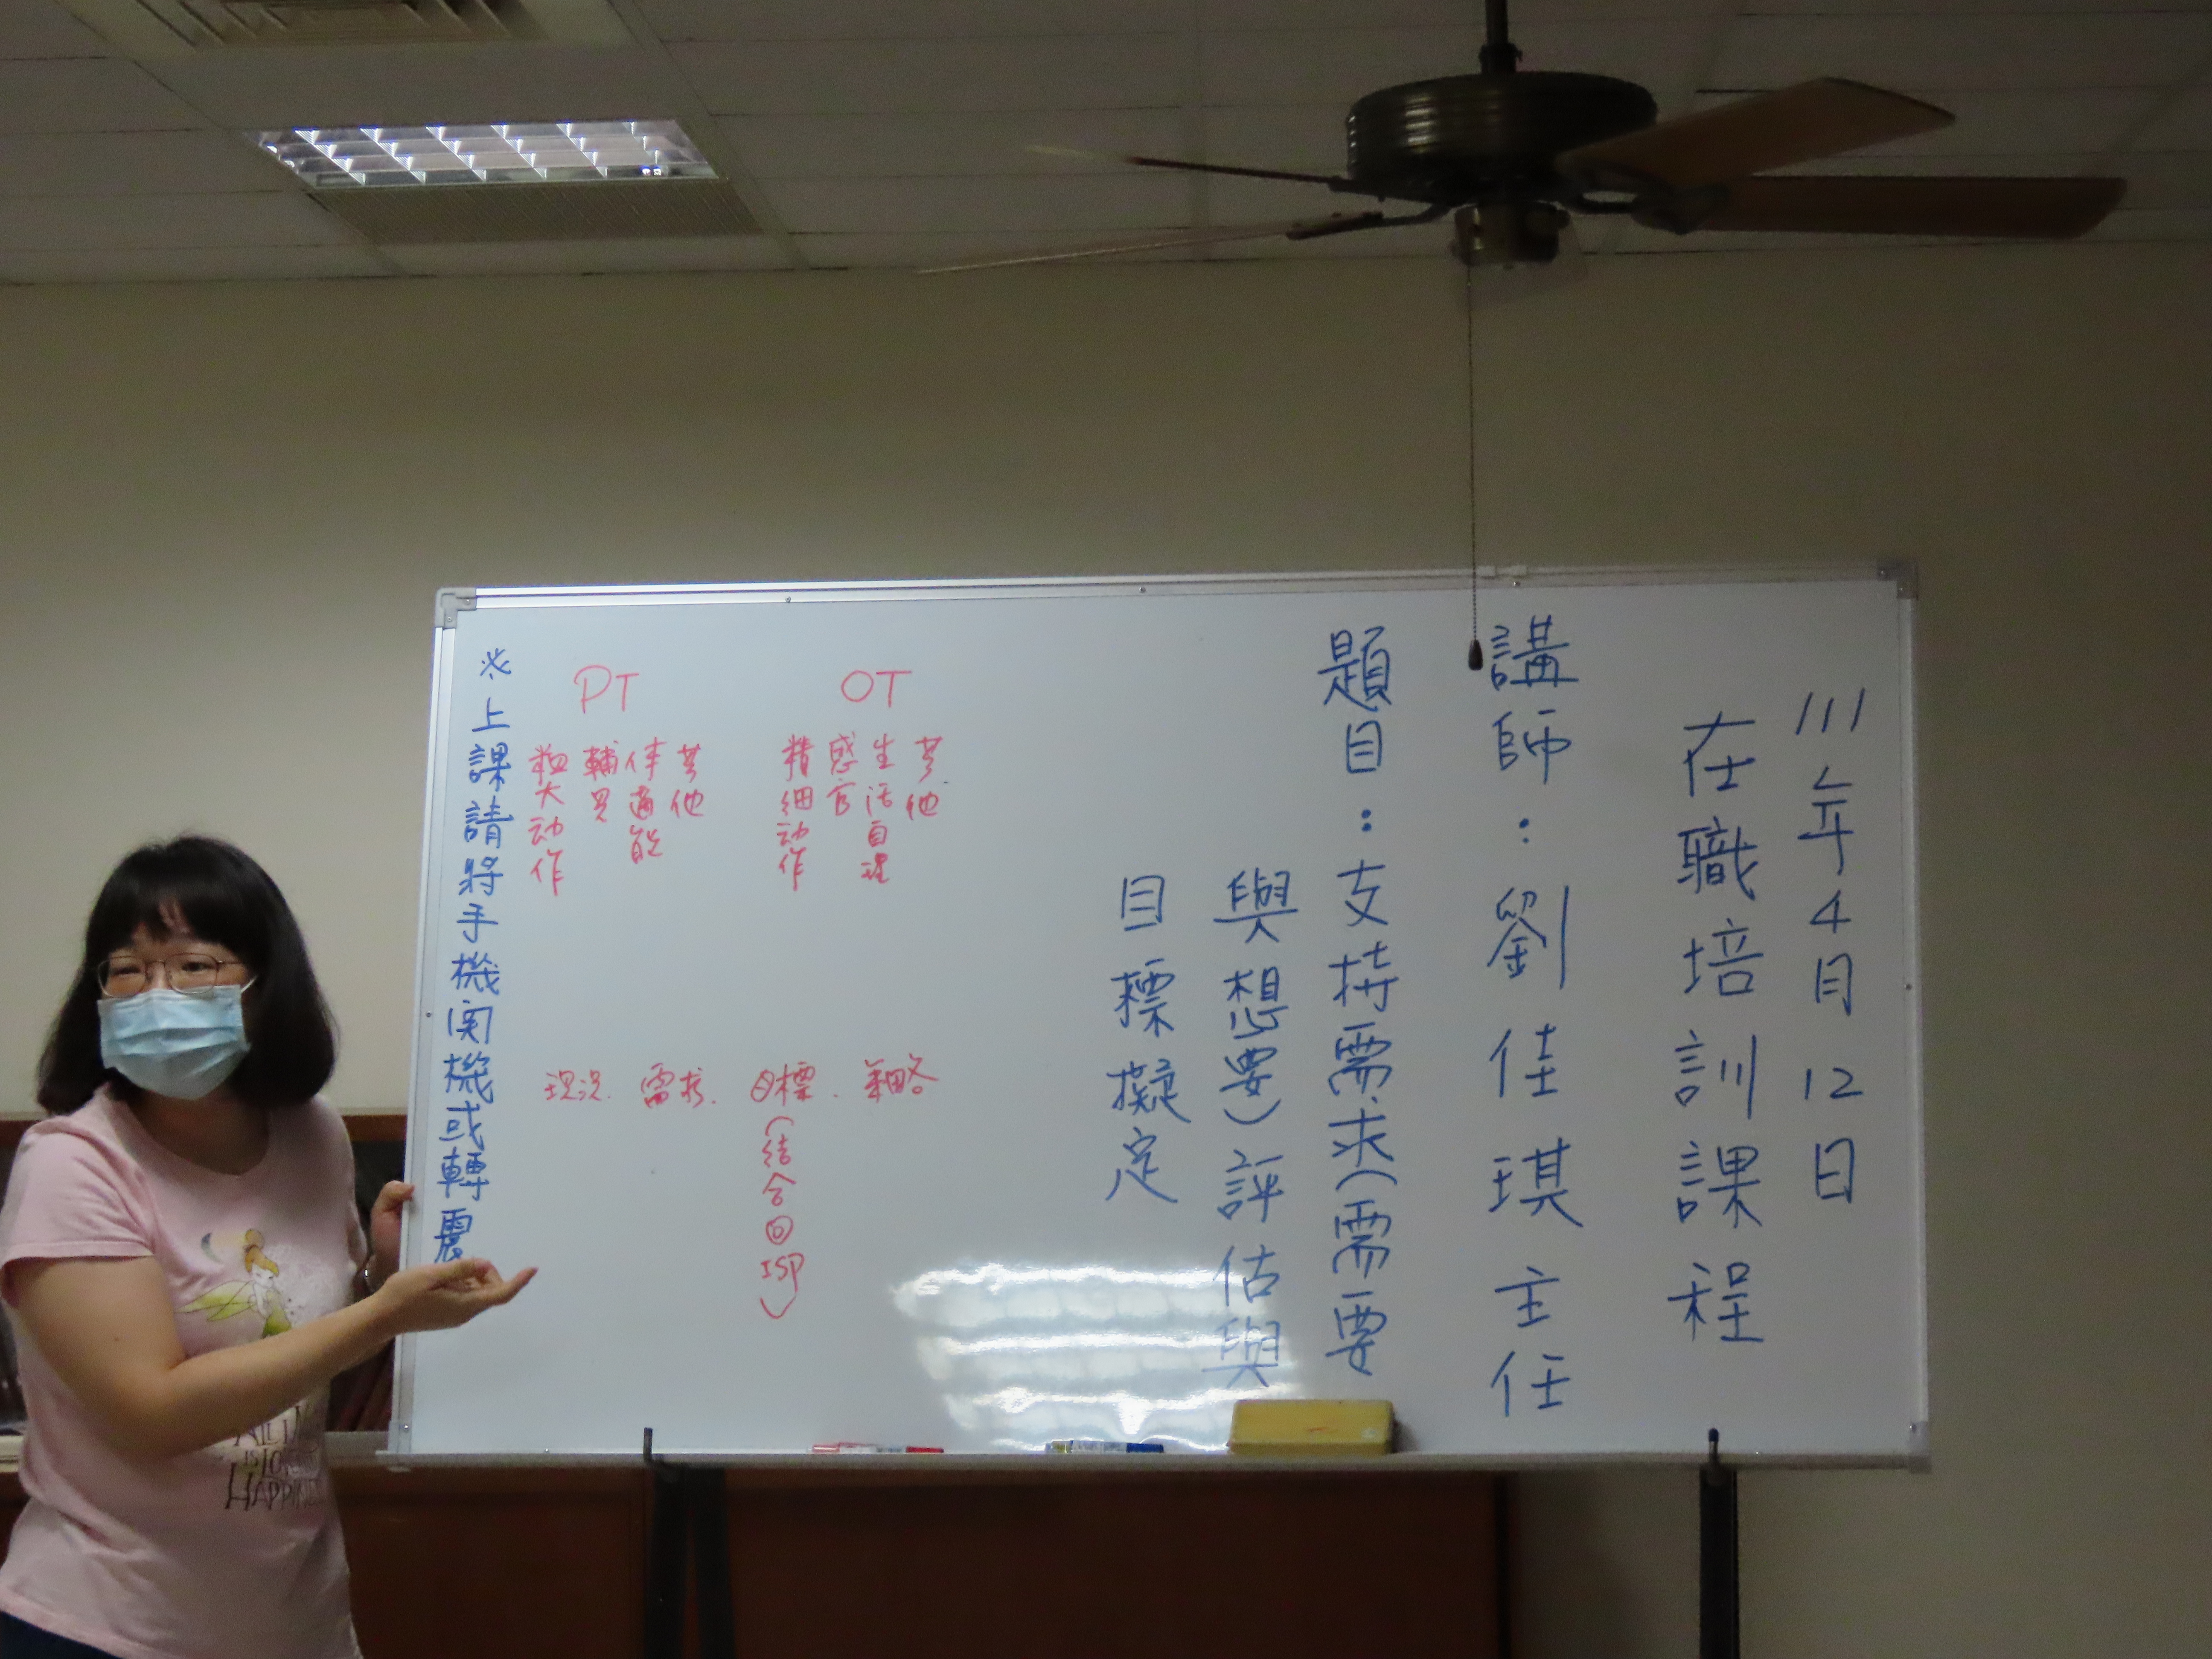 111年4月12日
在職培訓課程
講師：劉佳琪主任
題目：支持需求(需要
與想要)評估與
目標擬定
OT
精細动作
感官
生活自理
其他
PT
粗大动作
輔具
体適能
其他
現況. 需求. 目標. 策略
(結合回ISP)
※上課請將手機関機或轉震
ALL
IS LO
HAPPIN